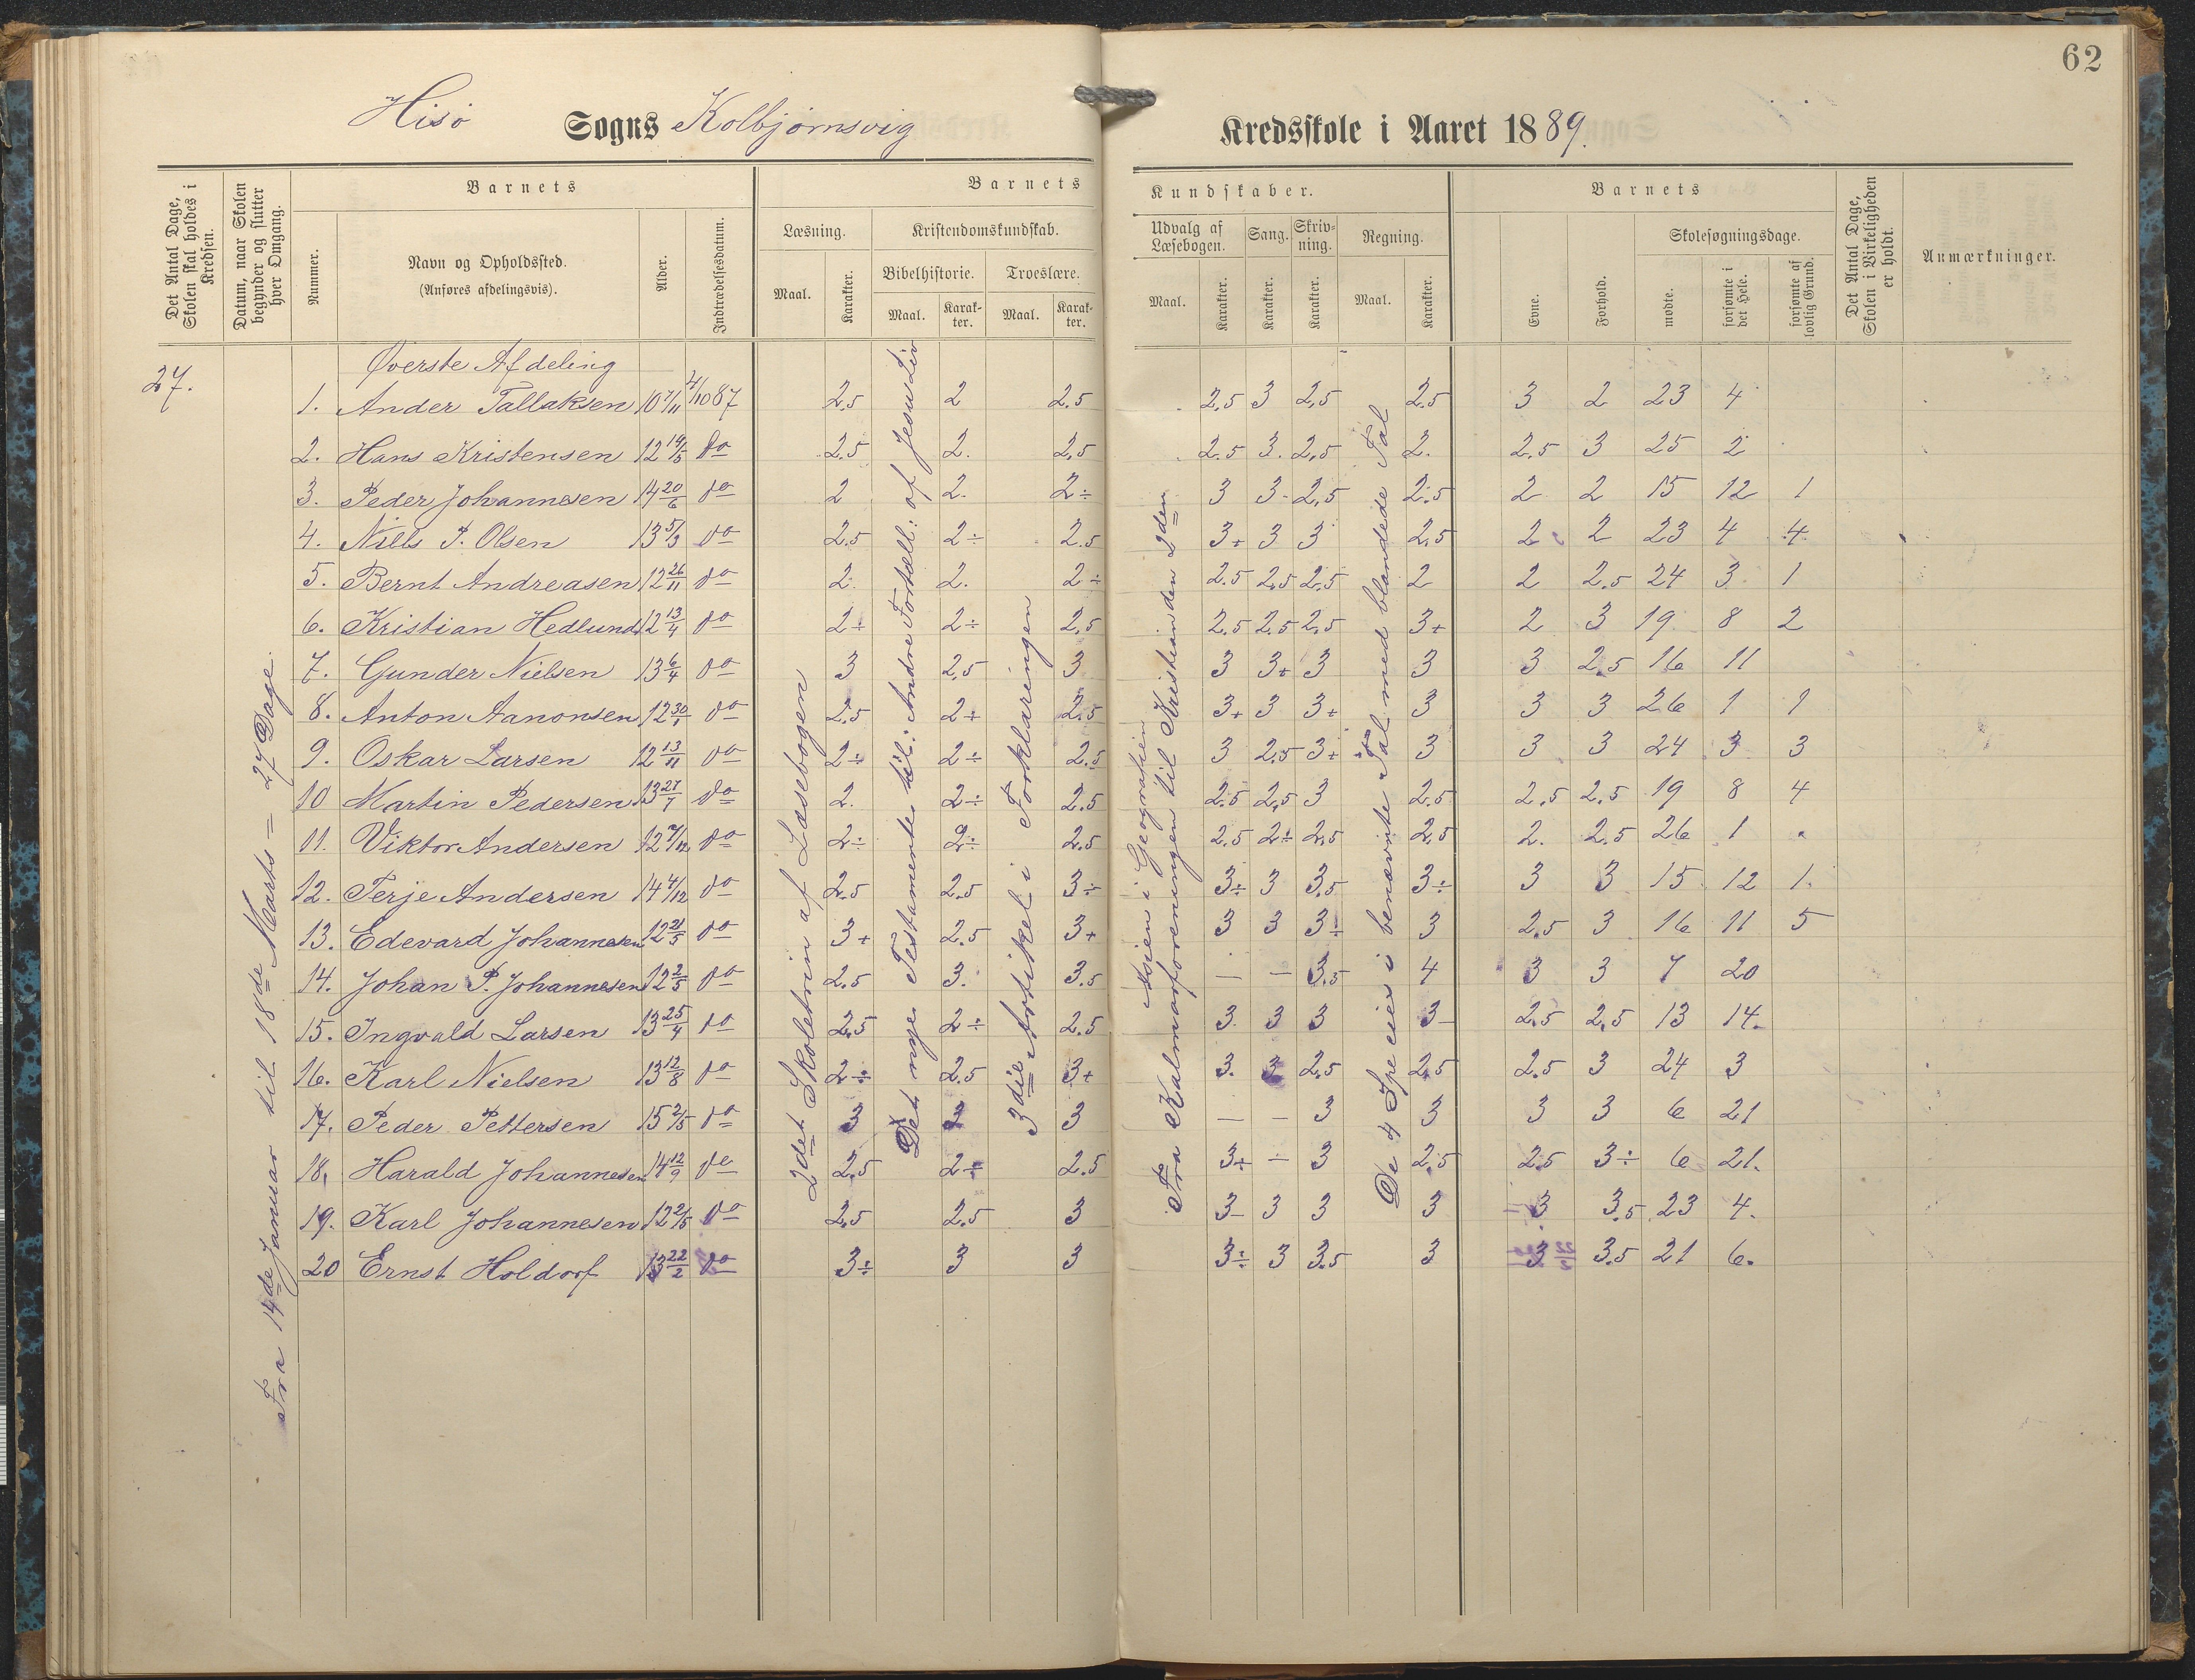 62
Hisö Sogns Kolbjørnsvig Kredsskole i Aaret 1889.
Det Antal Dage, Skolen skal holdes i Kredsen.
Datum, naar Skolen begynder og slutter hver Omgang.
Barnets
Nummer.
Navn og Opholdssted.
(Anføres afdelingsvis).
Alder.
Indtrædelsesdatum.
Barnets Kundskaber.
Læsning.
Maal. Karakter.
Kristendomskundskab.
Bibelhistorie. Troeslære.
Maal. Karakter. Maal. Karakter.
Udvalg af Læsebogen. Sang. Skrivning. Regning.
Maal. Karakter. Karakter. Karakter. Maal. Karakter.
Barnets
Evne. Forhold.
Skolesøgningsdage.
mødte. forsømte i det Hele. forsømte af lovlig Grund.
Det Antal Dage, Skolen i Virkeligheden er holdt.
Anmærkninger.
27.
Fra 14de Januar til 18de Marts = 27 Dage.
2det Skoletrin af Læsebogen
Det nye Testamente til: Andre Fortæll: af Jesu Liv
3die Artikel i Forklaringen
Asien i Geografien
Fra Kalmarforeningen til Kristian den 2den
De 4 Specier i benævnte Tal med blandede Tal
Øverste Afdeling
1. Ander Tallaksen 10 7/11 4/10 87 2.5 2 2.5 2,5 3 2,5 2.5 3 2 23 4
2. Hans Kristensen 12 14/5 do 2.5 2. 2,5 2.5 3. 2,5 2. 2,5 3 25 2
3. Peder Johannesen 14 20/6 do 2 2. 2÷ 3 3- 2,5 2.5 2 2 15 12 1
4. Niels P. Olsen 13 5/3 do 2.5 2÷ 2.5 3+ 3 3 2,5 2 2 23 4 4.
5. Bernt Andreasen 12 26/11 do 2. 2. 2÷ 2.5 2,5 2,5 2 2 2.5 24 3 1
6. Kristian Hedlund 12 13/4 do 2÷ 2÷ 2,5 2.5 2.5 2,5 3+ 2 3 19 8 2
7. Gunder Nielsen 13 6/4 do 3 2,5 3 3 3+ 3 3 3 2.5 16 11
8. Anton Aanonsen 12 30/1 do 2.5 2÷ 2.5 3+ 3 3+ 3 3 3 26 1 1
9. Oskar Larsen 12 13/11 do 2÷ 2÷ 2.5 3 2,5 3+ 3 3 3 24 3 3
10 Martin Pedersen 13 27/7 do 2. 2÷ 2.5 2.5 2,5 3 2.5 2,5 2,5 19 8 4
11. Viktor Andersen 12 7/12 do 2÷ 2÷ 2.5 2.5 2÷ 2,5 2,5 2. 2.5 26 1
12. Terje Andersen 14 4/12 do 2.5 2.5 3÷ 3÷ 3 3.5 3÷ 3 3 15 12 1.
13. Edevard Johannesen 12 21/5 do 3+ 2.5 3+ 3 3 3÷ 3 2.5 3 16 11 5
14. Johan P. Johannesen 12 2/5 do 2.5 3. 3.5 — — 3.5 4 3 3 7 20
15. Ingvald Larsen 13 25/4 do 2.5 2÷ 2.5 3. 3 3 3- 2.5 2,5 13 14.
16. Karl Nielsen 13 12/8 do 2÷ 2.5 3+ 3. 3 2,5 2,5 2.5 3 24 3
17. Peder Pettersen 15 2/5 do 3 3 — — 3 3 3 3 6 21
18. Harald Johannesen 14 12/9 do 2.5 2÷ 2.5 3+ — 3 2,5 2.5 3÷ 6 21.
19. Karl Johannesen 12 2/5 do 2.5 2.5 3 3- 3 3 3 3 3.5 23 4.
20 Ernst Holdorf 13 22/2 do 3÷ 3 3 3÷ 3 3.5 3 3 3.5 21 6.